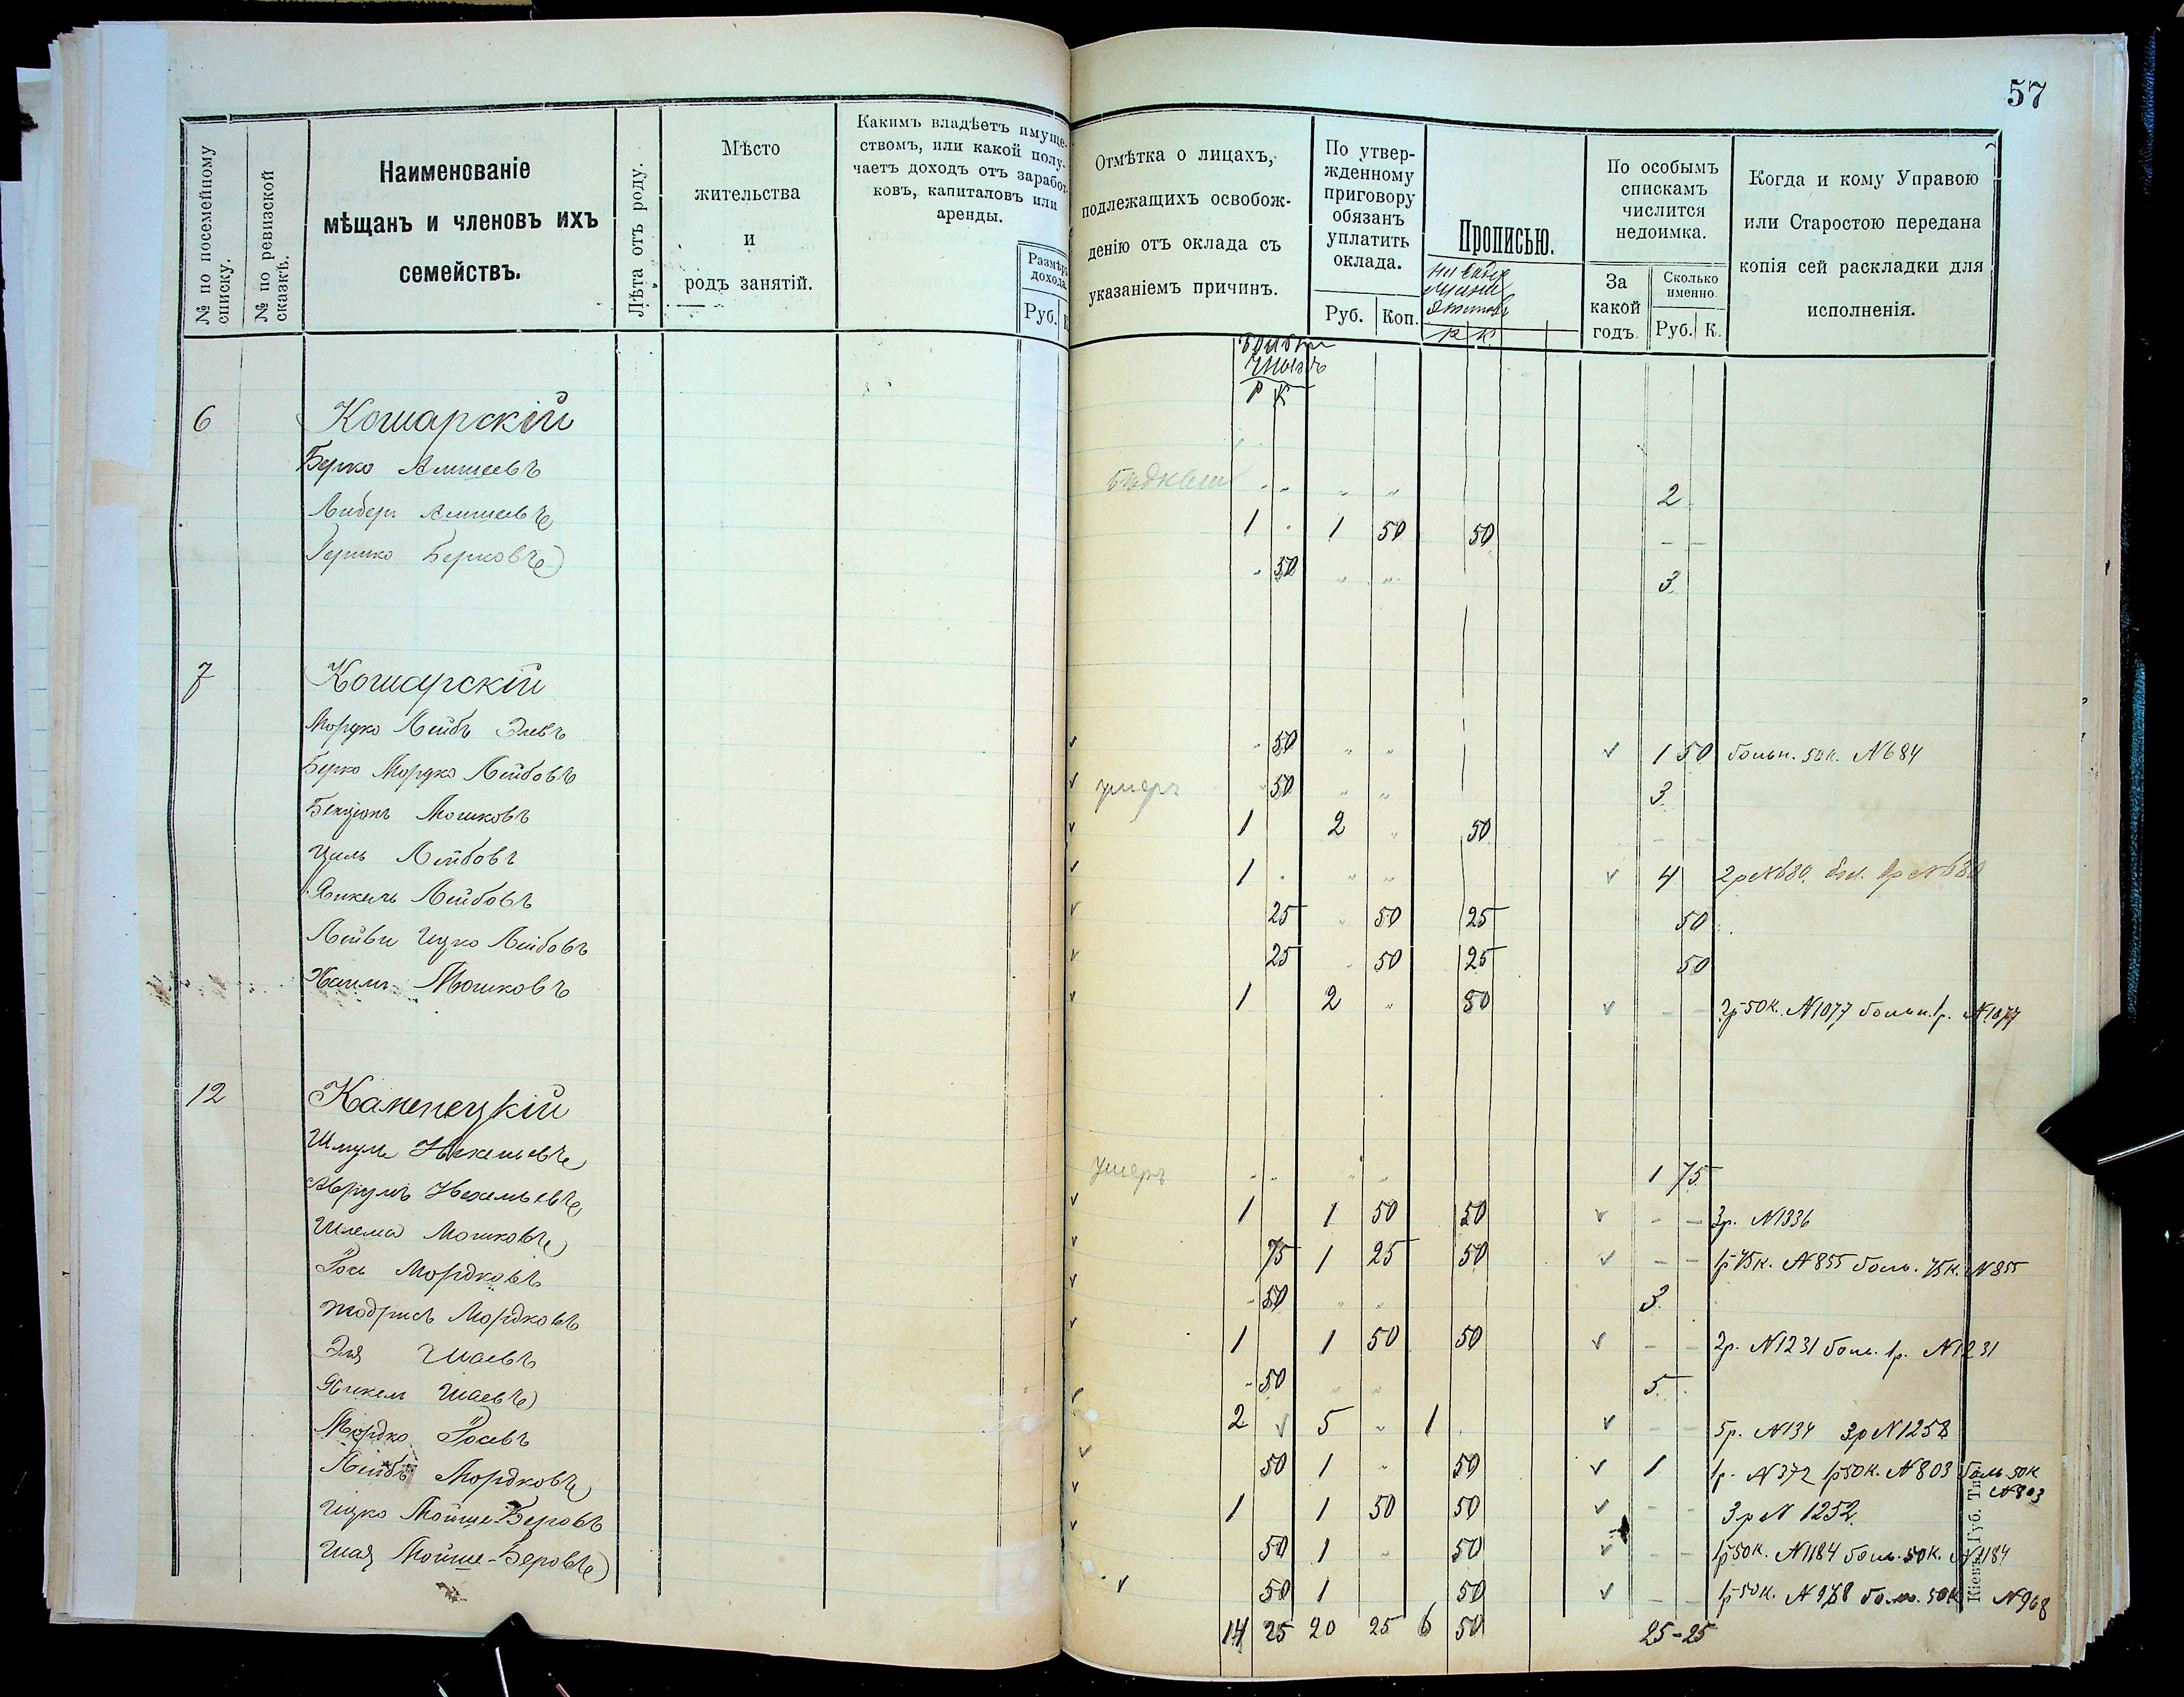 57
№ по посемейному списку.
№ по ревизской сказкѣ.
Наименованіе
мѣщанъ и членовъ ихъ
семействъ.
Лѣта отъ роду.
Мѣсто
жительства
и
родъ занятій.
Какимъ владѣетъ имуще-
ствомъ, или какой полу-
чаетъ доходъ отъ заработ-
ковъ, капиталовъ или
аренды.
Размѣръ
дохода
Руб.
Отмѣтка о лицахъ,
подлежащихъ освобож-
денію отъ оклада съ
указаніемъ причинъ.
По утвер-
жденному
приговору
обязанъ
уплатить
оклада.
Руб. Коп.
Прописью.
По особымъ
спискамъ
числится
недоимка.
За
какой
годъ.
Сколько
именно.
Руб. К.
Когда и кому Управою
или Старостою передана
копія сей раскладки для
исполненія.
Р К
6 Кошарскій
Берко 2
Либеръ 1 1 50 50
Гершко Берковъ 50 3
7 Кошарскій
Мордко Лейбъ Элевъ 50 1 50 больн. 50 к. №684
Берко Мордко Лейбовъ умеръ 50 3
Бенціонъ Мошковъ 1 2 50
Лейбовъ 1 4 2р №630
Янкель Лейбовъ 25 50 25 50
Лейви Ицко Лейбовъ 25 50 25 50
Хаимъ Мошковъ 1 2 50 2р 50к. №1077 больн. 1р. №1077
12 Каменецкій
Шмуль умеръ 1 75
Аврумъ 1 1 50 50 3р. №1336
Шлема Мошковъ 75 1 25 50 1р 75к. №855 боль. 75к. №855
Іось Мордковъ 50 3
Тодрисъ Мордковъ 1 1 50 50 2р. №1231 боль. 1р. №1231
Эля Шаевъ 50 5
Янкель Шаевъ 2 5 1 5р. №134 3р №1258
Мордко Іосевъ 50 1 50 1 1р. №372 1р 50к. №803 боль 50к
№803
Лейбъ Мордковъ 1 1 50 50 3р № 1252
Ицко Мойше-Беровъ 50 1 50 1р 50к. №1184 боль. 50к. №1184
Шая Мойше-Беровъ 50 1 50 1р 50к. №968 боль. 50к №968
14 25 20 25 6 50 25-25
Кіевъ, Губ. Тип.